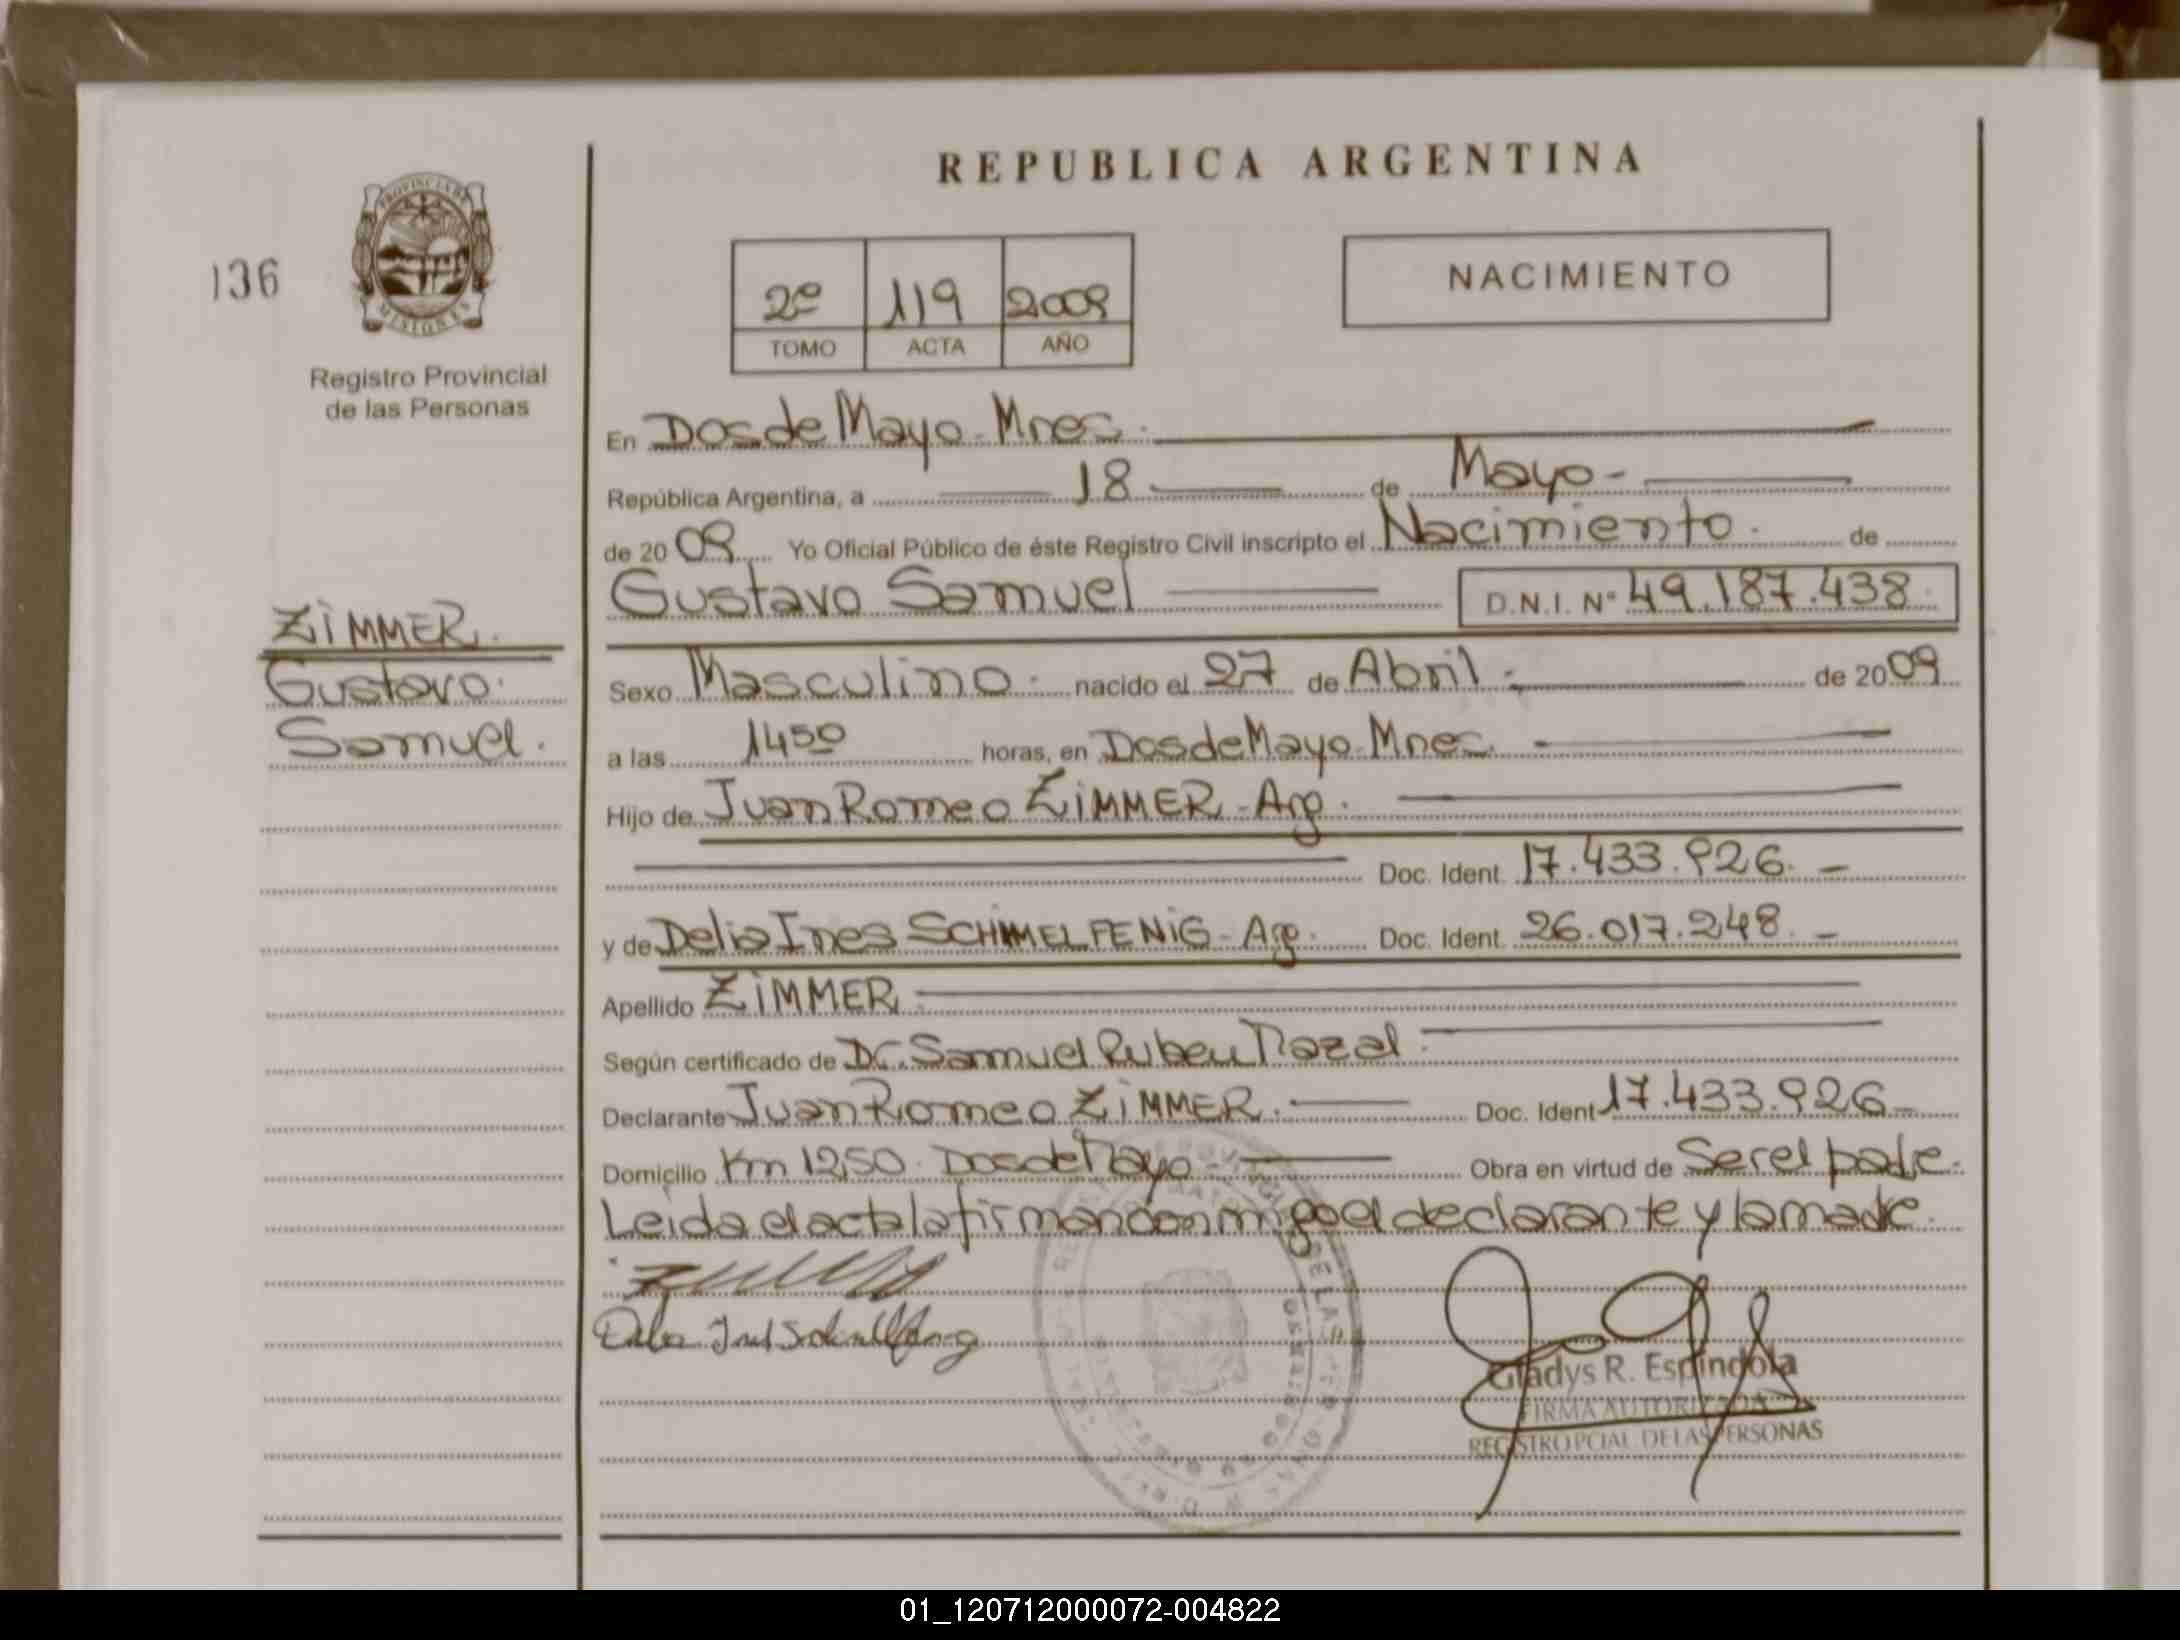 REPUBLICA ARGENTINA
136
PROVINCIA DE
MISIONES
Registro Provincial
de las Personas
2º 119 2009
TOMO ACTA AÑO
NACIMIENTO
En Dos de Mayo - Mnes.
República Argentina, a 18 de Mayo -
de 2009 Yo Oficial Público de éste Registro Civil inscripto el Nacimiento. de
Gustavo Samuel D.N.I. Nº 49.187.438
ZIMMER.
Gustavo
Samuel.
Sexo Masculino. nacido el 27 de Abril. de 2009
a las 1450 horas, en Dos de Mayo - Mnes.
Hijo de Juan Romeo ZIMMER - Arg.
Doc. Ident. 17.433.926. -
y de Delia Ines SCHIMELFENIG - Arg. Doc. Ident. 26.017.248. -
Apellido ZIMMER.
Según certificado de Dr. Samuel Ruben Nazal.
Declarante Juan Romeo ZIMMER. Doc. Ident 17.433.926 -
Domicilio Km 1250. Dos de Mayo - Obra en virtud de Ser el padre.
Leida el acta la firman conmigo el declarante y la madre.
Gladys R. Espindola
FIRMA AUTORIZADA
REGISTRO PCIAL DE LAS PERSONAS
01_120712000072-004822